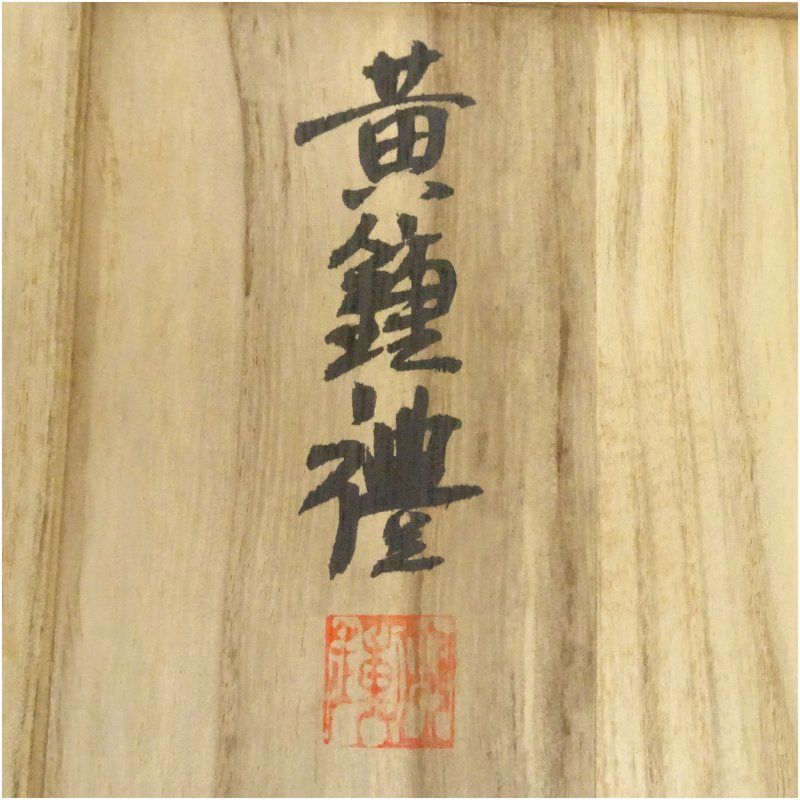 黄鐘禮